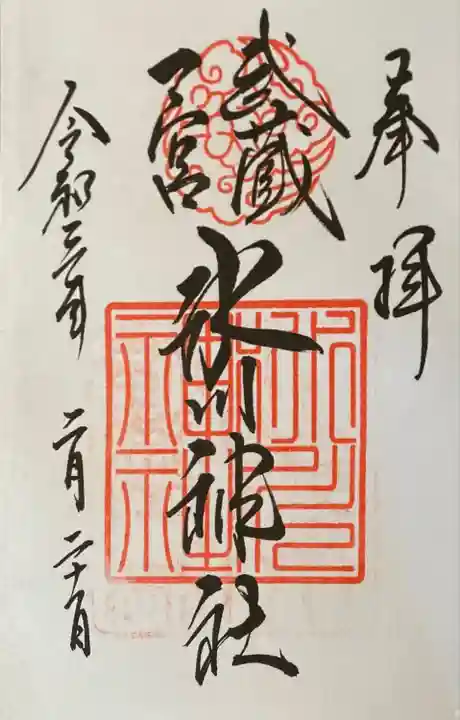 奉拝
武蔵
一宮
氷川神社
令和三年
二月二十一日